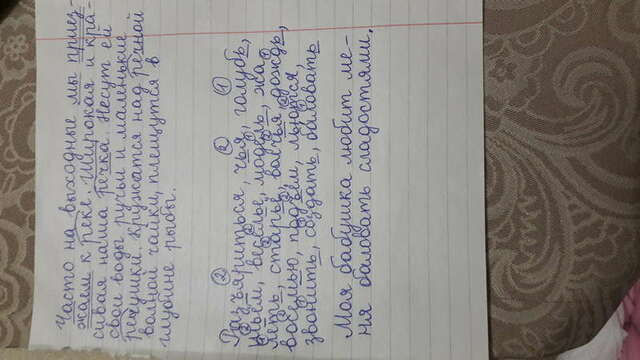 Часто на выходные мы приез-
жаем к реке. Широкая и кра-
сивая наша речка. Несут ей
свои воды ручьи и маленькие
речушки. Кружатся над речной
волной чайки, плещутся в
глубине рыбы.
2 2 1
Разъяриться, чья, голубь,
пьём, веселье, модель, жа
леть, старьё, волчья, дождь,
восемью, подъём, льются,
звонить, создать, баловать
Моя бабушка любит ме-
ня баловать сладостями.